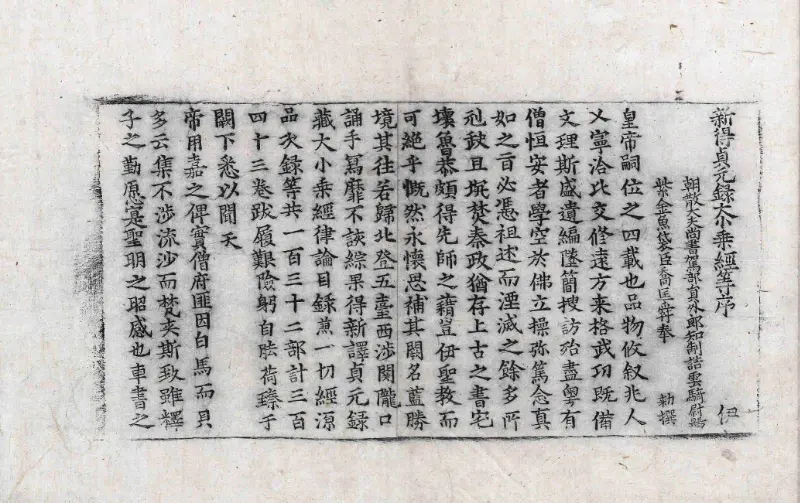 新得貞元錄大小乘經等序 伊
朝散大夫尚書駕部員外郎知制誥雲騎尉賜
紫金魚袋臣喬匡舜奉 勑撰
皇帝嗣位之四載也品物攸叙兆人
乂寧洽比交修遠方来格武功既備
文理斯盛遺編墜簡搜訪殆盡粤有
僧恒安者學空於佛立操弥篤念真
如之旨必憑祖述而湮滅之餘多所
刓缺且坑焚秦政猶存上古之書宅
壞魯恭頗得先師之籍豈伊聖教而
可絕乎慨然永懷思補其闕名藍勝
境其往若歸北登五臺西涉関隴口
誦手寫靡不該綜果得新譯貞元錄
藏大小乘經律論目錄兼一切經源
品次錄等共一百三十二部計三百
四十三卷跋履艱險躬自胠荷臻于
闕下悉以聞天
帝用嘉之俾實僧府匪因白馬而貝
多云集不涉流沙而梵夾斯致雖釋
子之勤愿寔聖明之昭感也車書之